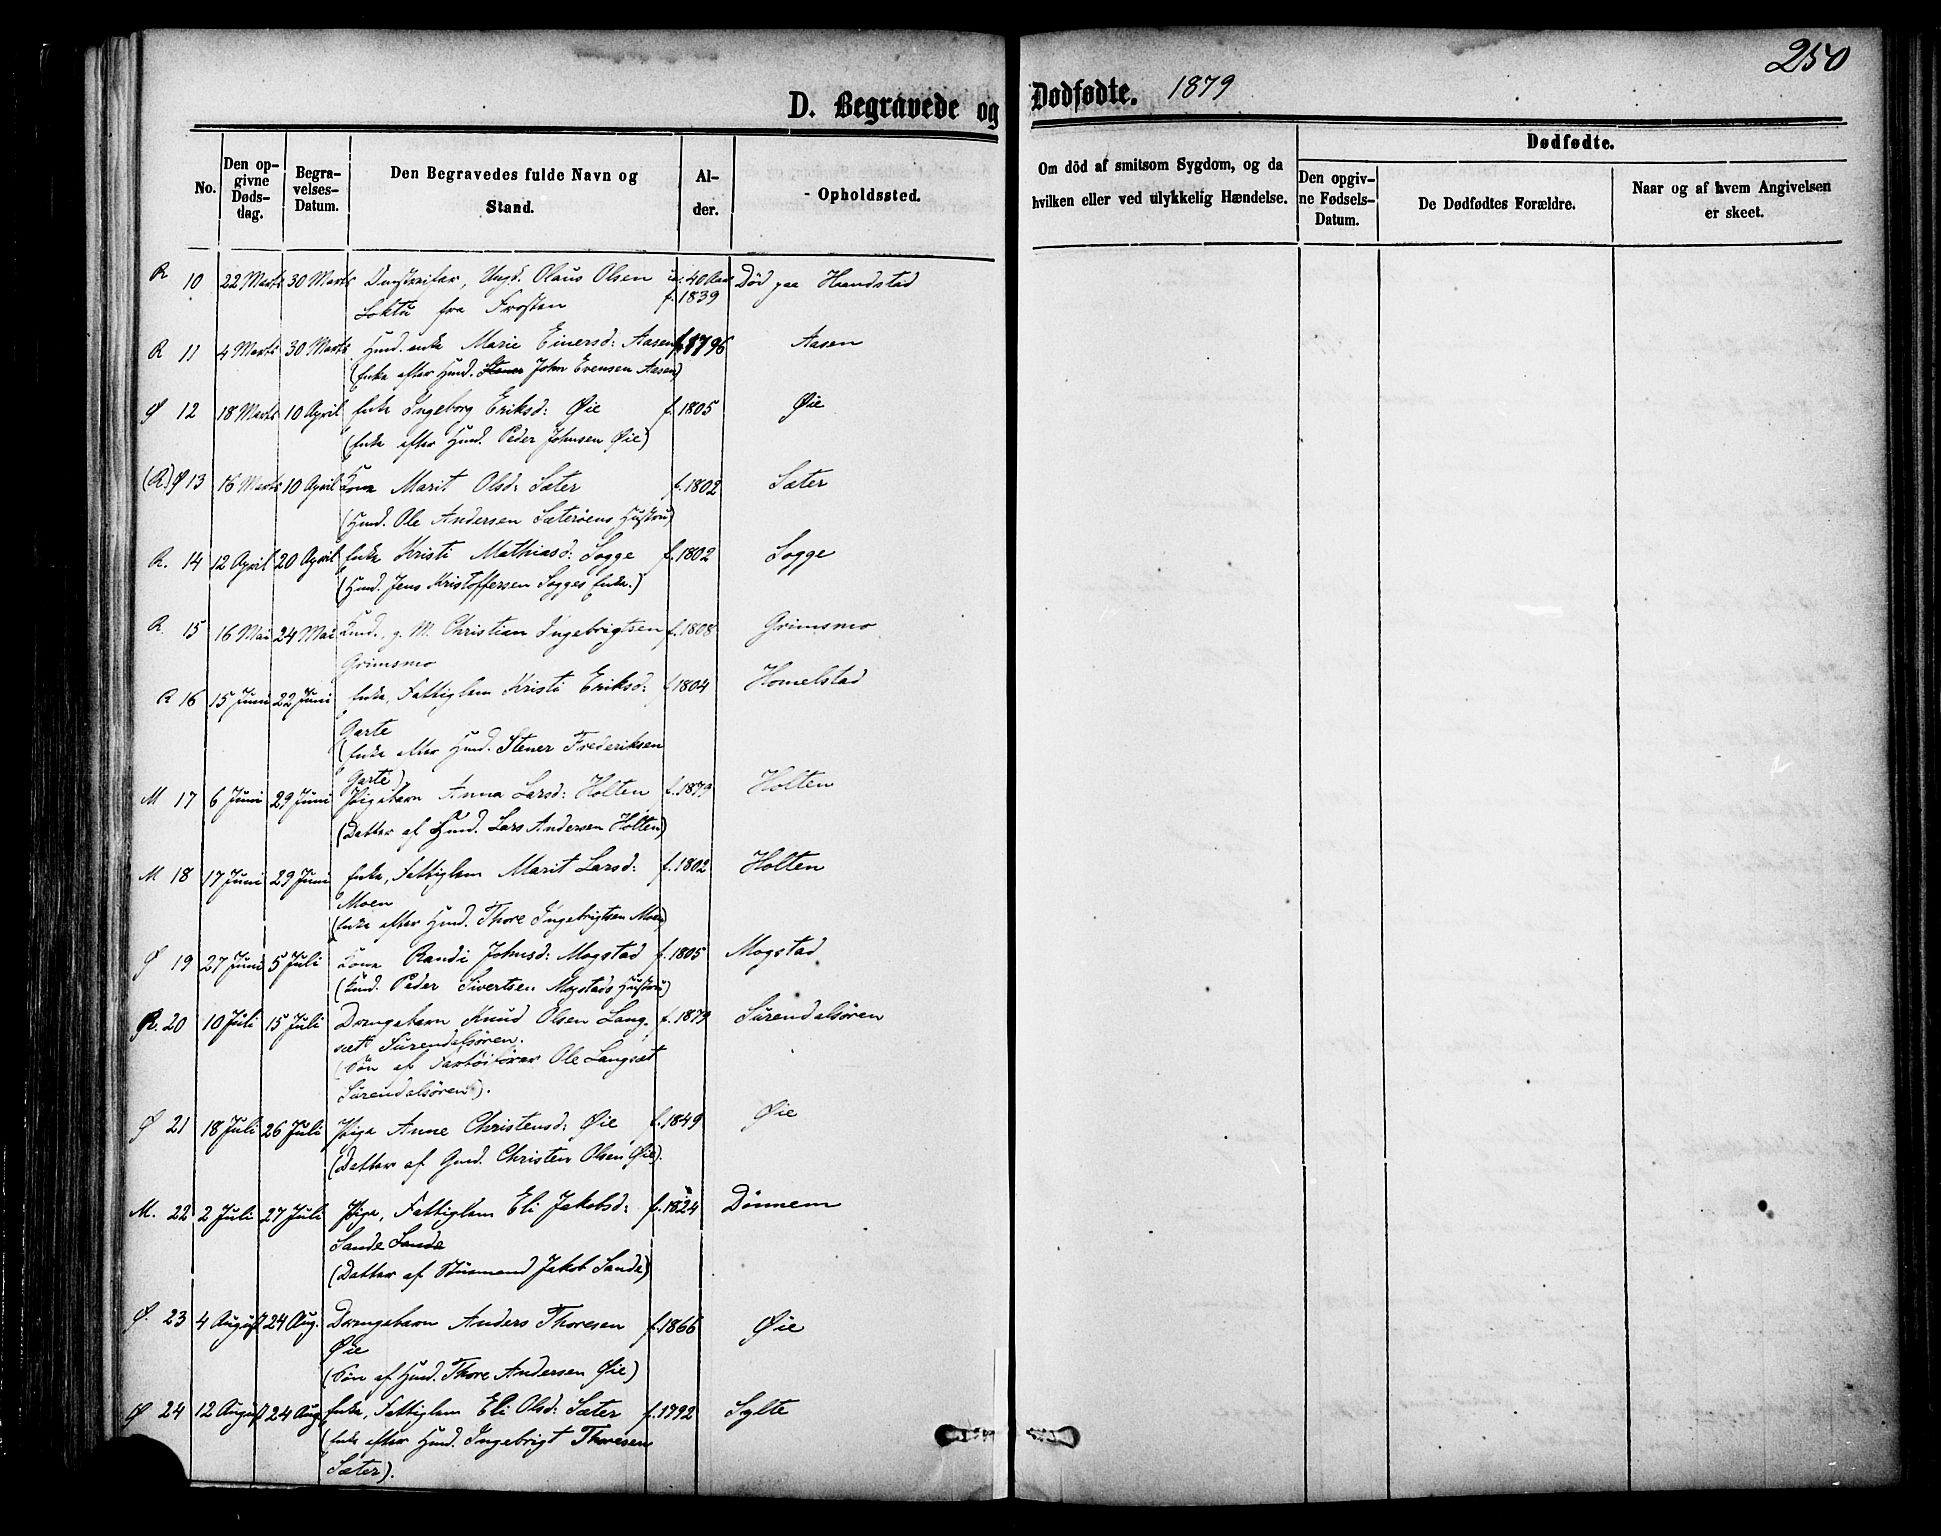 250
D. Begravede og Dødfødte. 1879
No.
Den opgivne Dødsdag.
Begravelses-Datum.
Den Begravedes fulde Navn og Stand.
Alder.
Opholdssted.
Om död af smitsom Sygdom, og da hvilken eller ved ulykkelig Hændelse.
Dødfødte.
Den opgivne Fødsels-Datum.
De Dødfødtes Forældre.
Naar og af hvem Angivelsen er skeet.
R 10 22 Marts 30 Marts Ungk. Olaus Olsen 40 Aar Død paa Handstad
fra Frosten f. 1839
R 11 4 Marts 30 Marts Huusm. enke Marie Einersd: Aasen f. 1796 Aasen
(Enke efter Huusm. Stener John Evensen Aasen)
Ø 12 18 Marts 10 April Enke Ingeborg Eriksd: Øie f. 1805 Øie
(Enke efter Huusm. Peder Johnsen Øie)
(R) Ø 13 16 Marts 10 April Kone Marit Olsd: Sæter f. 1802 Sæter
(Huusm. Ole Andersen Sæterøens Hustru)
R. 14 12 April 20 April Enke Kristi Mathiasd: Sogge f. 1802 Sogge
(Huusm. Jens Kristoffersen Sogges Enke.)
R. 15 16 Mai 24 Mai Huusm., g. M. Christian Ingebrigtsen f. 1808 Grimsmo
Grimsmo
R 16 15 Juni 22 Juni Enke, Fattiglem Kristi Eriksd: f. 1804 Homelstad
Garte
(Enke efter Huusm. Stener Frederiksen
Garte)
M 17 6 Juni 29 Juni Pigebarn Anna Larsd: Holten f. 1879 Holten
(Datter af Huusm. Lars Andersen Holten)
M 18 17 Juni 29 Juni Enke, Fattiglem Marit Larsd: f. 1802 Holten
Moen
(Enke efter Huusm. Thore Ingebrigtsen Moen)
Ø 19 27 Juni 5 Juli Kone Randi Johnsd: Mogstad f. 1805 Mogstad
(Huusm. Peder Sivertsen Mogstads Hustru)
R. 20 10 Juli 15 Juli Drengebarn Knud Olsen Lang- f. 1879 Surendalsören
sæt Surendalsören.
(Søn af Fartøifører Ole Langsæt
Surendalsören).
Ø 21 18 Juli 26 Juli Pige Anne Christensd: Øie f. 1849 Øie
(Datter af Gmd. Christen Olsen Øie).
M. 22 2 Juli 27 Juli Pige, Fattiglem Eli Jakobsd: f. 1824 Dönnem
Sande Sande
(Datter af Huusmand Jakob Sande)
Ø. 23 4 August 24 Aug. Drengebarn Anders Thoresen f. 1866 Øie
Øie
(Søn af Huusm. Thore Andersen Øie)
Ø 24 12 August 24 Aug. Enke, Fattiglem Eli Olsd: Sæter f. 1792 Sylte
(Enke efter Huusm. Ingebrigt Thoresen
Sæter).